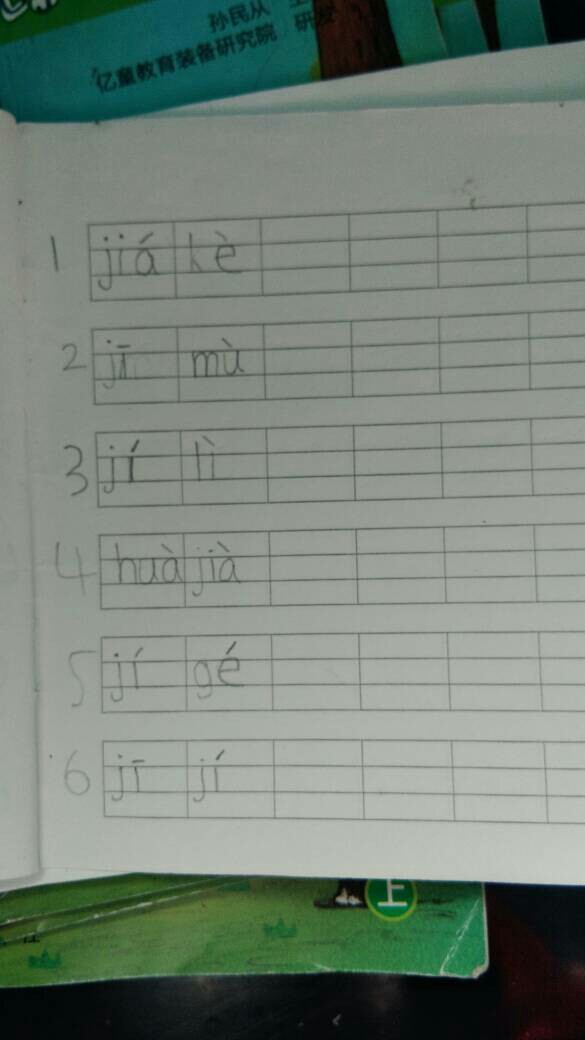 孙民从
亿童教育装备研究院 研发
1 jiá kè
2 jī mù
3 jí lì
4 huà jià
5 jí gé
6 jī jí
上